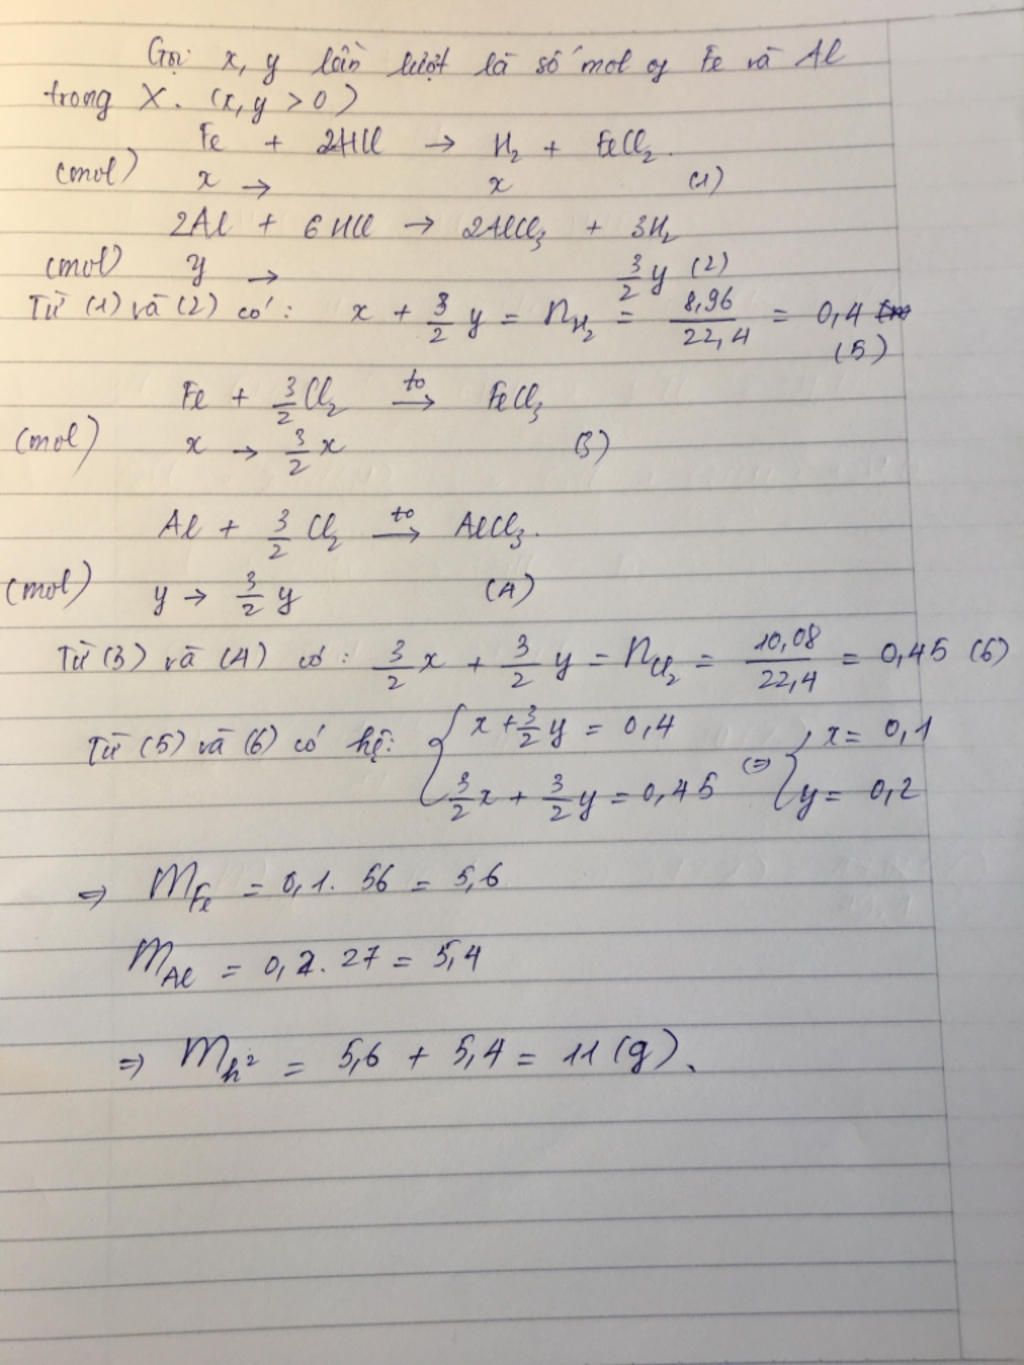 Gọi x, y lần lượt là số mol of Fe và Al
trong X. (x, y > 0)
Fe + 2HCl → H₂ + FeCl₂.
(mol) x → x (1)
2Al + 6HCl → 2AlCl₃ + 3H₂
(mol) y → 3/2 y (2)
Từ (1) và (2) có: x + 3/2 y = nH₂ = 8,96/22,4 = 0,4
(5)
Fe + 3/2 Cl₂ →(to) FeCl₃
(mol) x → 3/2 x (3)
Al + 3/2 Cl₂ →(to) AlCl₃.
(mol) y → 3/2 y (4)
Từ (3) và (4) có: 3/2 x + 3/2 y = nCl₂ = 10,08/22,4 = 0,45 (6)
Từ (5) và (6) có hệ: { x + 3/2 y = 0,4
3/2 x + 3/2 y = 0,45 (=) { x = 0,1
y = 0,2
⇒ mFe = 0,1. 56 = 5,6
mAl = 0,2. 27 = 5,4
⇒ mh² = 5,6 + 5,4 = 11 (g).